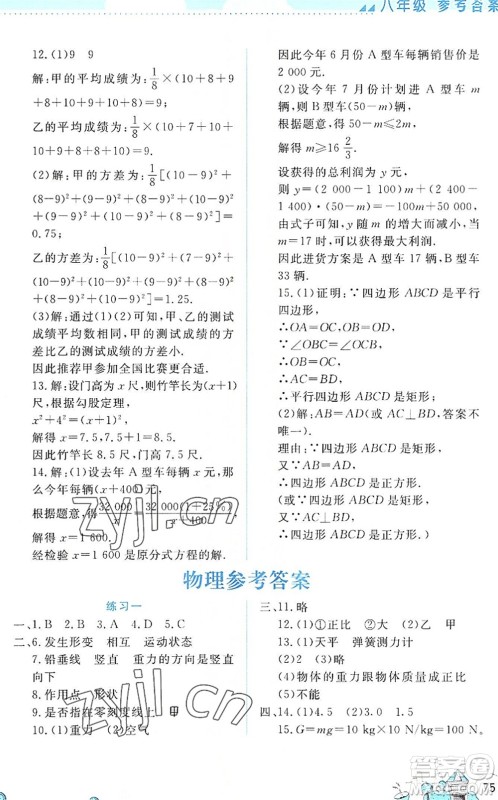 八年级 参考答案
12.(1)9 9
解:甲的平均成绩为:1/8×(10+8+9+
8+10+9+10+8)=9.
乙的平均成绩为:1/8×(10+7+10+
10+9+8+8+10)=9.
(2)解:甲的方差为:1/8[(10-9)²+
(8-9)²+(9-9)²+(8-9)²+
(10-9)²+(9-9)²+(10-9)²+
(8-9)²]=
0.75;
乙的方差为:1/8[(10-9)²+(7-
9)²+(10-9)²+(10-9)²+(9-
9)²+(8-9)²+(8-9)²+
(10-9)²]=1.25.
(3)解:通过(1)(2)可知,甲、乙的测
试成绩的平均数相同,甲的测试成绩的方
差比乙的测试成绩的方差小.
因此推荐甲参加全国比赛更合适.
13.解:设门高为x尺,则竹竿长为(x+4)
尺,根据勾股定理,
x²+4²=(x+1)²,
解得x=7.5,7.5+1=8.5.
因此竹竿长8.5尺,门高7.5尺.
14.解:(1)设去年A型车每辆x元,那
么今年每辆(x+400)元,
根据题意,得32 000/x=32 000(1+25%)/(x+400),
解得x=1 600.
经检验x=1 600是原分式方程的解.
因此今年6月份A型车每辆销售价是
2 000元.
(2)设今年7月份计划进A型车m
辆,则B型车(50-m)辆,
根据题意,得50-m≤2m,
解得m≥16 2/3.
设获得的总利润为y元,
则y=(2 000-1 100)m+(2 400-
1 400)·(50-m)=-100m+50 000,
可知,y随m的增大而减小,
当m=17时,可以获得最大利润.
因此进货方案是A型车17辆,B型车
33辆.
15.(1)证明:∵四边形ABCD是平行
四边形,
∴OA=OC,OB=OD.
∵∠OBC=∠OCB,
∴OB=OC,
∴AC=BD,
∴平行四边形ABCD是矩形;
(2)解:AB=AD(或AC⊥BD,答案不
唯一).
理由:∵四边形ABCD是矩形,
又∵AB=AD,
∴四边形ABCD是正方形.
或:∵四边形ABCD是矩形,
又∵AC⊥BD,
∴四边形ABCD是正方形.
物理参考答案
练习一
一、1.B 2.B 3.A 4.D 5.C
二、6.发生形变 相互 运动状态
7.铅垂线 竖直 重力的方向是竖直
向下
8.作用点 形状
9.是否指在零刻度线上 甲
10.(1)重力 (2)空气
三、11.略
12.(1)①正比 (2)乙 甲
13.(1)①天平 弹簧测力计
(2)③略
(4)物体的重力跟物体质量成正比
(5)不能
四、14.(1)4.5 (2)3.0 1.5
15.G=mg=10 kg×10 N/kg=100 N.
75
zyjl.cn
zyjl.cn
答案圈